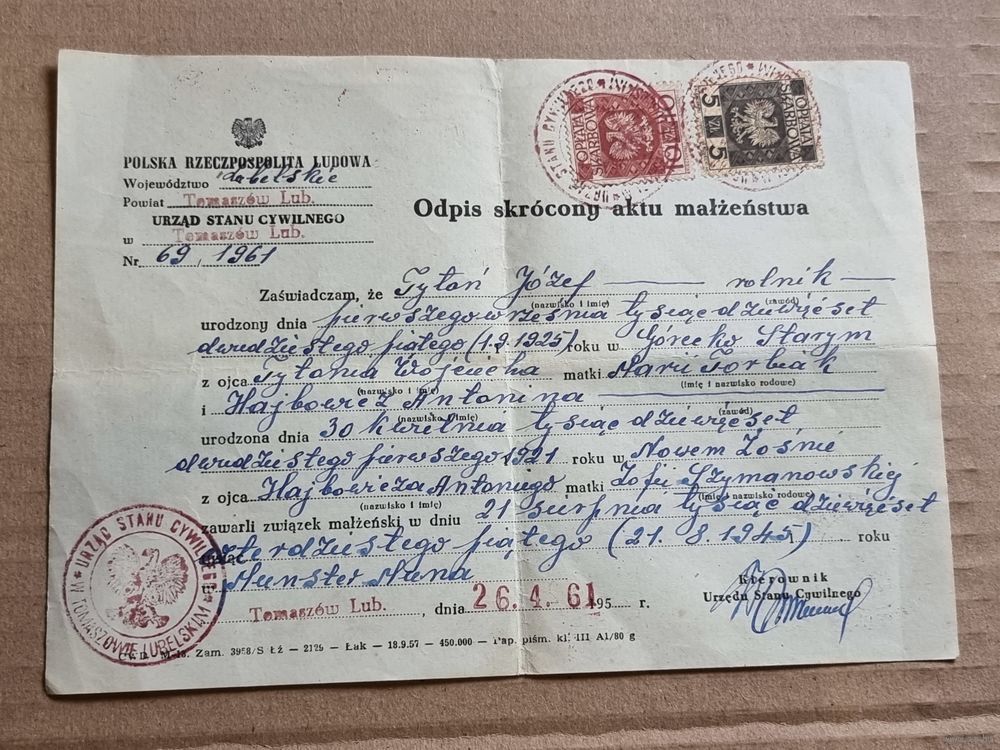 POLSKA RZECZPOSPOLITA LUDOWA
Województwo Lubelskie
Powiat Tomaszów Lub.
URZĄD STANU CYWILNEGO
w Tomaszów Lub.
Nr 69, 1961
OPŁATA SKARBOWA 10 ZŁ 10
5 ZŁ 5 OPŁATA SKARBOWA
Odpis skrócony aktu małżeństwa
Zaświadczam, że Tytoń Józef — rolnik —
(nazwisko i imię) (zawód)
urodzony dnia pierwszego września tysiąc dziewięćset
dwudziestego piątego (1.9.1925) roku w Górecko Starym
z ojca Tytonia Wojciecha matki Marii Torbiak
(nazwisko i imię) (imię i nazwisko rodowe)
i Hajbowicz Antonina
(nazwisko i imię) (zawód)
urodzona dnia 30 kwietnia tysiąc dziewięćset
dwudziestego pierwszego 1921 roku w Nowem
z ojca Hajbowicza Antoniego matki Zofii Szymanowskiej
(nazwisko i imię) (imię i nazwisko rodowe)
zawarli związek małżeński w dniu 21 sierpnia tysiąc dziewięćset
czterdziestego piątego (21.8.1945) roku
w Munster
Tomaszów Lub., dnia 26. 4. 61 195 r.
Kierownik
Urzędu Stanu Cywilnego
URZĄD STANU CYWILNEGO W TOMASZOWIE LUBELSKIM
M-18. Zam. 3958/S Łź — 2129 — Łak — 18.9.57 — 450.000 — Pap. piśm. kl. III A1/80 g